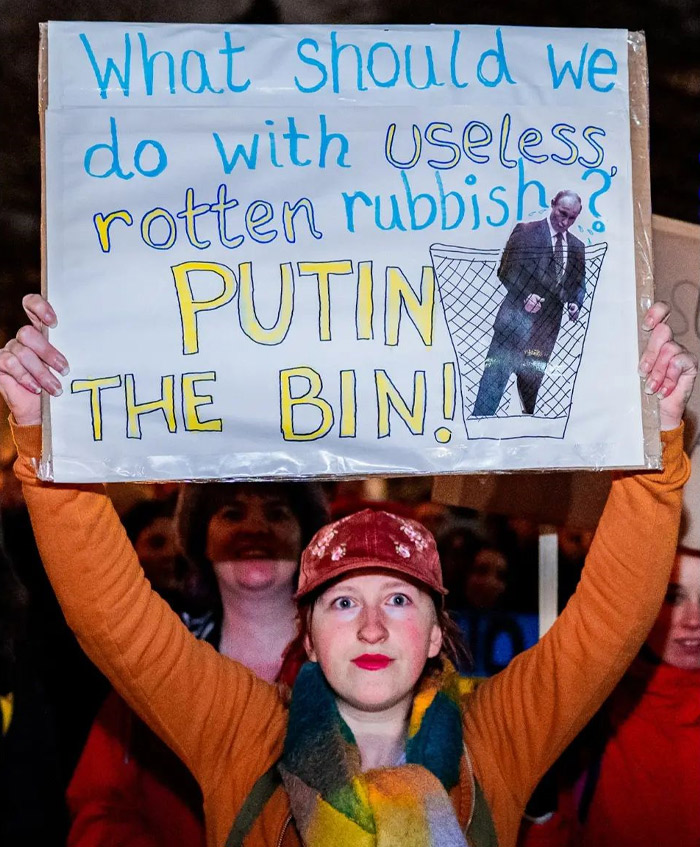 What should we
do with useless,
rotten rubbish?
PUTIN
THE BIN!